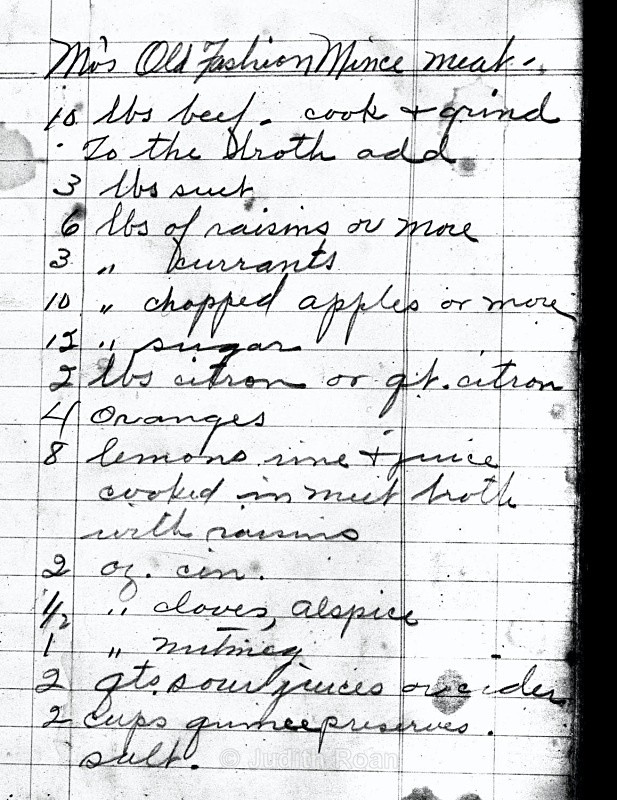 Mo's Old Fashion Mince meat.
10 lbs beef. cook & grind
To the broth add
3 lbs suet
6 lbs of raisins or more
3 " currants
10 " chopped apples or more
12 " sugar
2 lbs citron or qt. citron
4 oranges
8 lemons rine & juice
cooked in meet broth
with raisins
2 oz. cin.
1/2 " cloves, alspice
1 " nutmeg
2 qts. sour juices or cider
2 cups preserves.
salt.
© Judith Roan